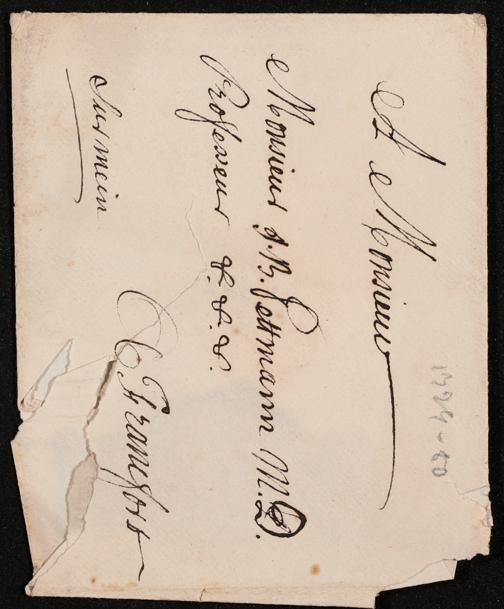 A Monsieur
Monsieur J. B. Pettmann M.D.
Professeur &.&.&.
à Francfort
sur mein